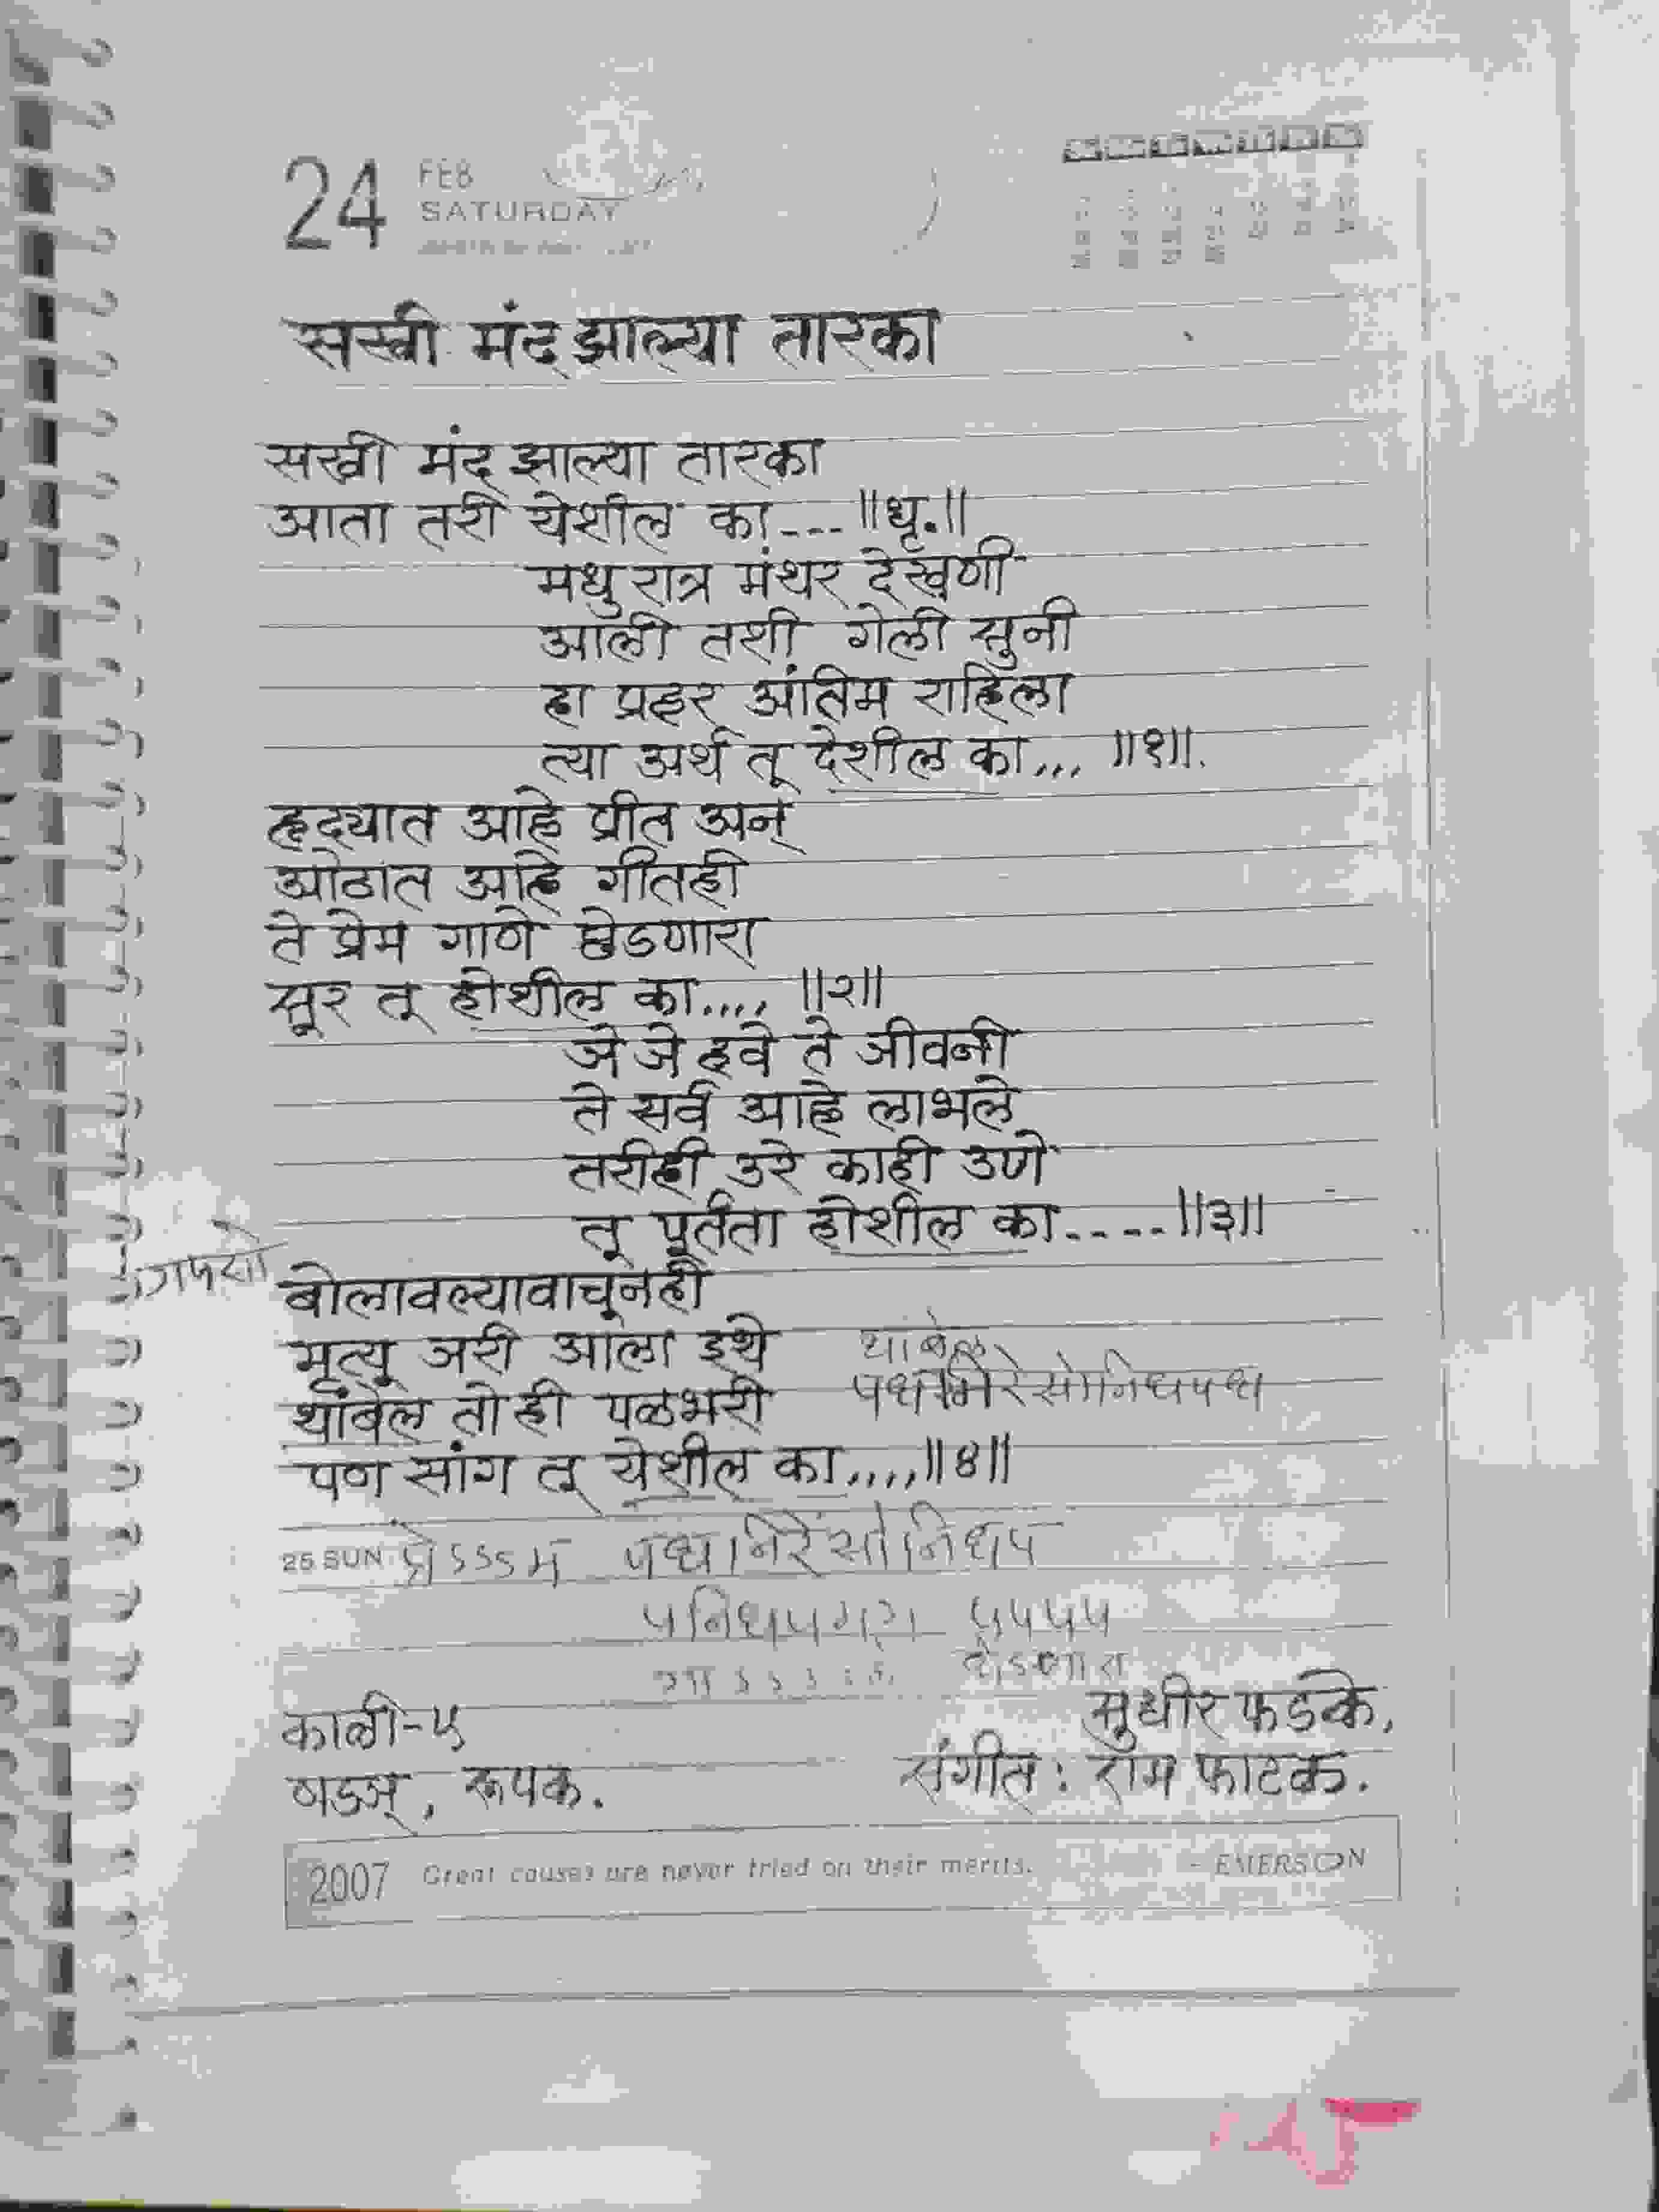 24 FEB
SATURDAY
सखी मंद झाल्या तारका
सखी मंद झाल्या तारका
आता तरी येशील का--- ॥धृ.॥
मधु रात्र मंथर देखणी
आली तशी गेली सुनी
हा प्रहर अंतिम राहिला
त्या अर्थ तू देशील का,,, ॥१॥.
ह्रद्यात आहे प्रीत अन्
ओठात आहे गीतही
ते प्रेम गाणे छेडणारा
सूर तू होशील का.... ॥२॥
जे जे हवे ते जीवनी
ते सर्व आहे लाभले
तरीही उरे काही उणे
तू पूर्तता होशील का.... ॥३॥
बोलावल्यावाचूनही
मृत्यु जरी आला इथे थांबेल
थांबेल तो ही पळभरी
पण सांग तू येशील का,,,,॥४॥
25 SUN प्रेऽऽऽम पधानिरेंसांनिधप
पनिधपगरेग पपपप
छेडणारा
काळी-५ सुधीर फडके,
षडज्, रूपक. संगीत: राम फाटक.
2007 Great causes are never tried on their merits. - EMERSON